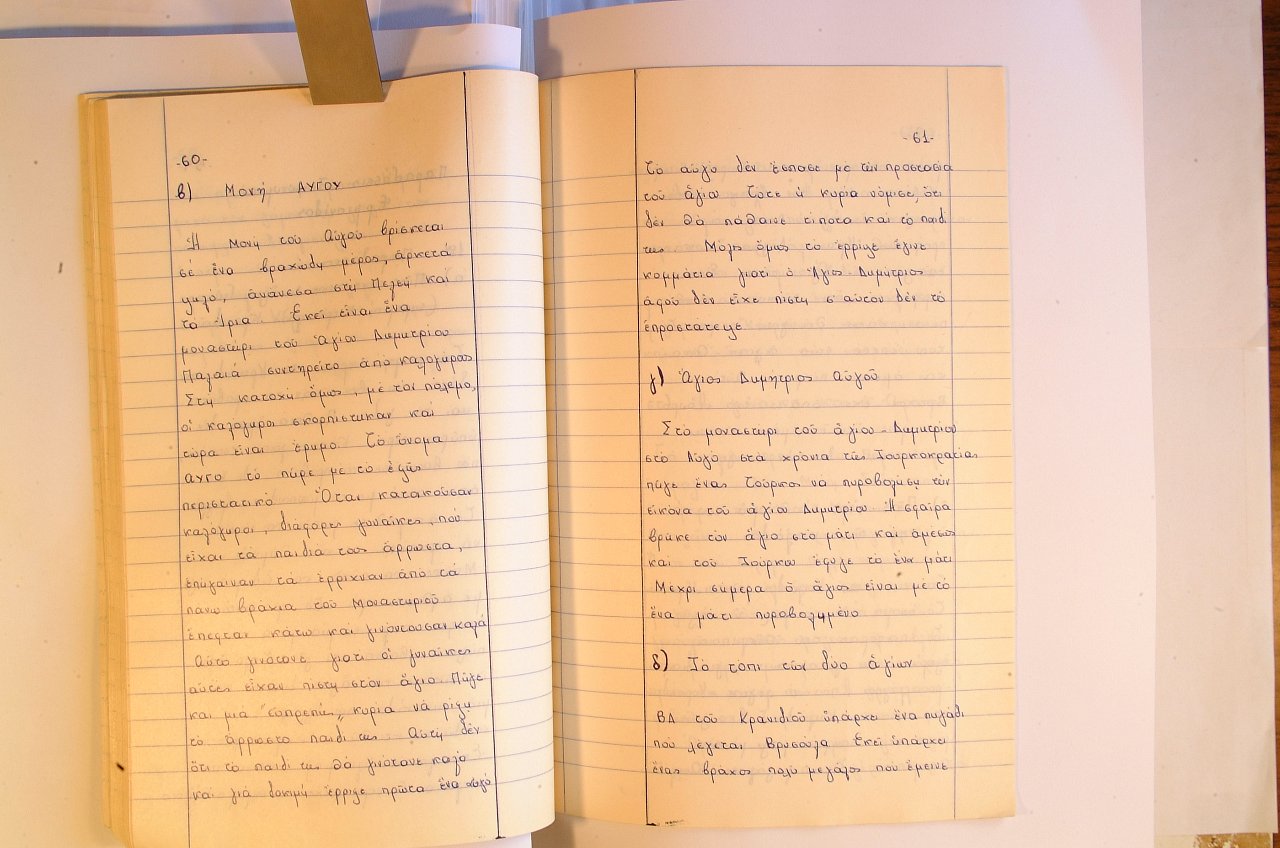 -60-
β) Μονή ΑΥΓΟΥ
Ἡ Μονή τοῦ Αὐγοῦ βρίσκεται
σέ ἕνα βραχώδη μέρος, ἀρκετά
ψηλό, ἀνάμεσα στή Πελεή και
τό Ἴρια. Ἐκεῖ εἶναι ἕνα
μοναστήρι τοῦ Ἁγίου Δημητρίου
Παλαιά συντηρεῖτο ἀπό καλόγηρους
Στή κατοχή ὅμως, μέ τόν πόλεμο,
οἱ καλόγηροι σκορπίστηκαν και
τώρα εἶναι ἔρημο. Τό ὄνομα
ΑΥΓΟ τό πῆρε με τό ἑξῆς
περιστατικό Ὅταν κατοικοῦσαν
καλόγηροι, διάφορες γυναῖκες, πού
εἶχαν τά παιδιά τους ἄρρωστα,
ἐπήγαιναν τά ἔρριχναν ἀπό τά
πάνω βράχια τοῦ Μοναστηριοῦ
ἔπεφταν κάτω και γινόντουσαν καλά
Αὐτό γινότανε γιατι οἱ γυναῖκες
αὐτες εἶχαν πίστη στον ἅγιο. Πῆγε
και μιά "εὐπρεπής" κυρία νά ρίψη
τό ἄρρωστο παιδί της. Αὐτή δέν
ὅτι τό παιδί της θά γινότανε καλά
και γιά δοκιμή ἔρριψε πρῶτα ἕνα αὐγό
-61-
Τό αὐγό δέν ἔσπασε με τήν προστασία
τοῦ ἁγίου Τότε ἡ κυρία νόμισε, ὅτι
δέν θά πάθαινε τίποτα και τό παιδί
της. Μόλις ὅμως τό ἔρριψε ἔγινε
κομμάτια γιατί ὁ Ἅγιος Δημήτριος
ἀφοῦ δέν εἶχε πίστη σ' αὐτόν δέν τό
ἐπροστάτεψε
γ) Ἅγιος Δημήτριος Αὐγοῦ
Στό μοναστήρι τοῦ ἁγίου - Δημητρίου
στό Αὐγό στά χρόνια τῆς Τουρκοκρατίας
πῆγε ἕνας Τοῦρκος νά πυροβολήση τήν
εἰκόνα τοῦ ἁγίου Δημητρίου. Ἡ σφαίρα
βρῆκε τόν ἅγιο στό μάτι και ἀμέσως
και τοῦ Τούρκου ἔφυγε τό ἕνα μάτι
Μέχρι σήμερα ὁ ἅγιος εἶναι με τό
ἕνα μάτι πυροβολημένο
δ) Τό τοπι τῶν δύο ἁγίων
ΒΔ τοῦ Κρανιδιοῦ ὑπάρχει ἕνα πηγάδι
πού λέγεται Βρυσούλα Ἐκεῖ ὑπάρχει
ἕνας βράχος πολύ μεγάλος που ἔμεινε